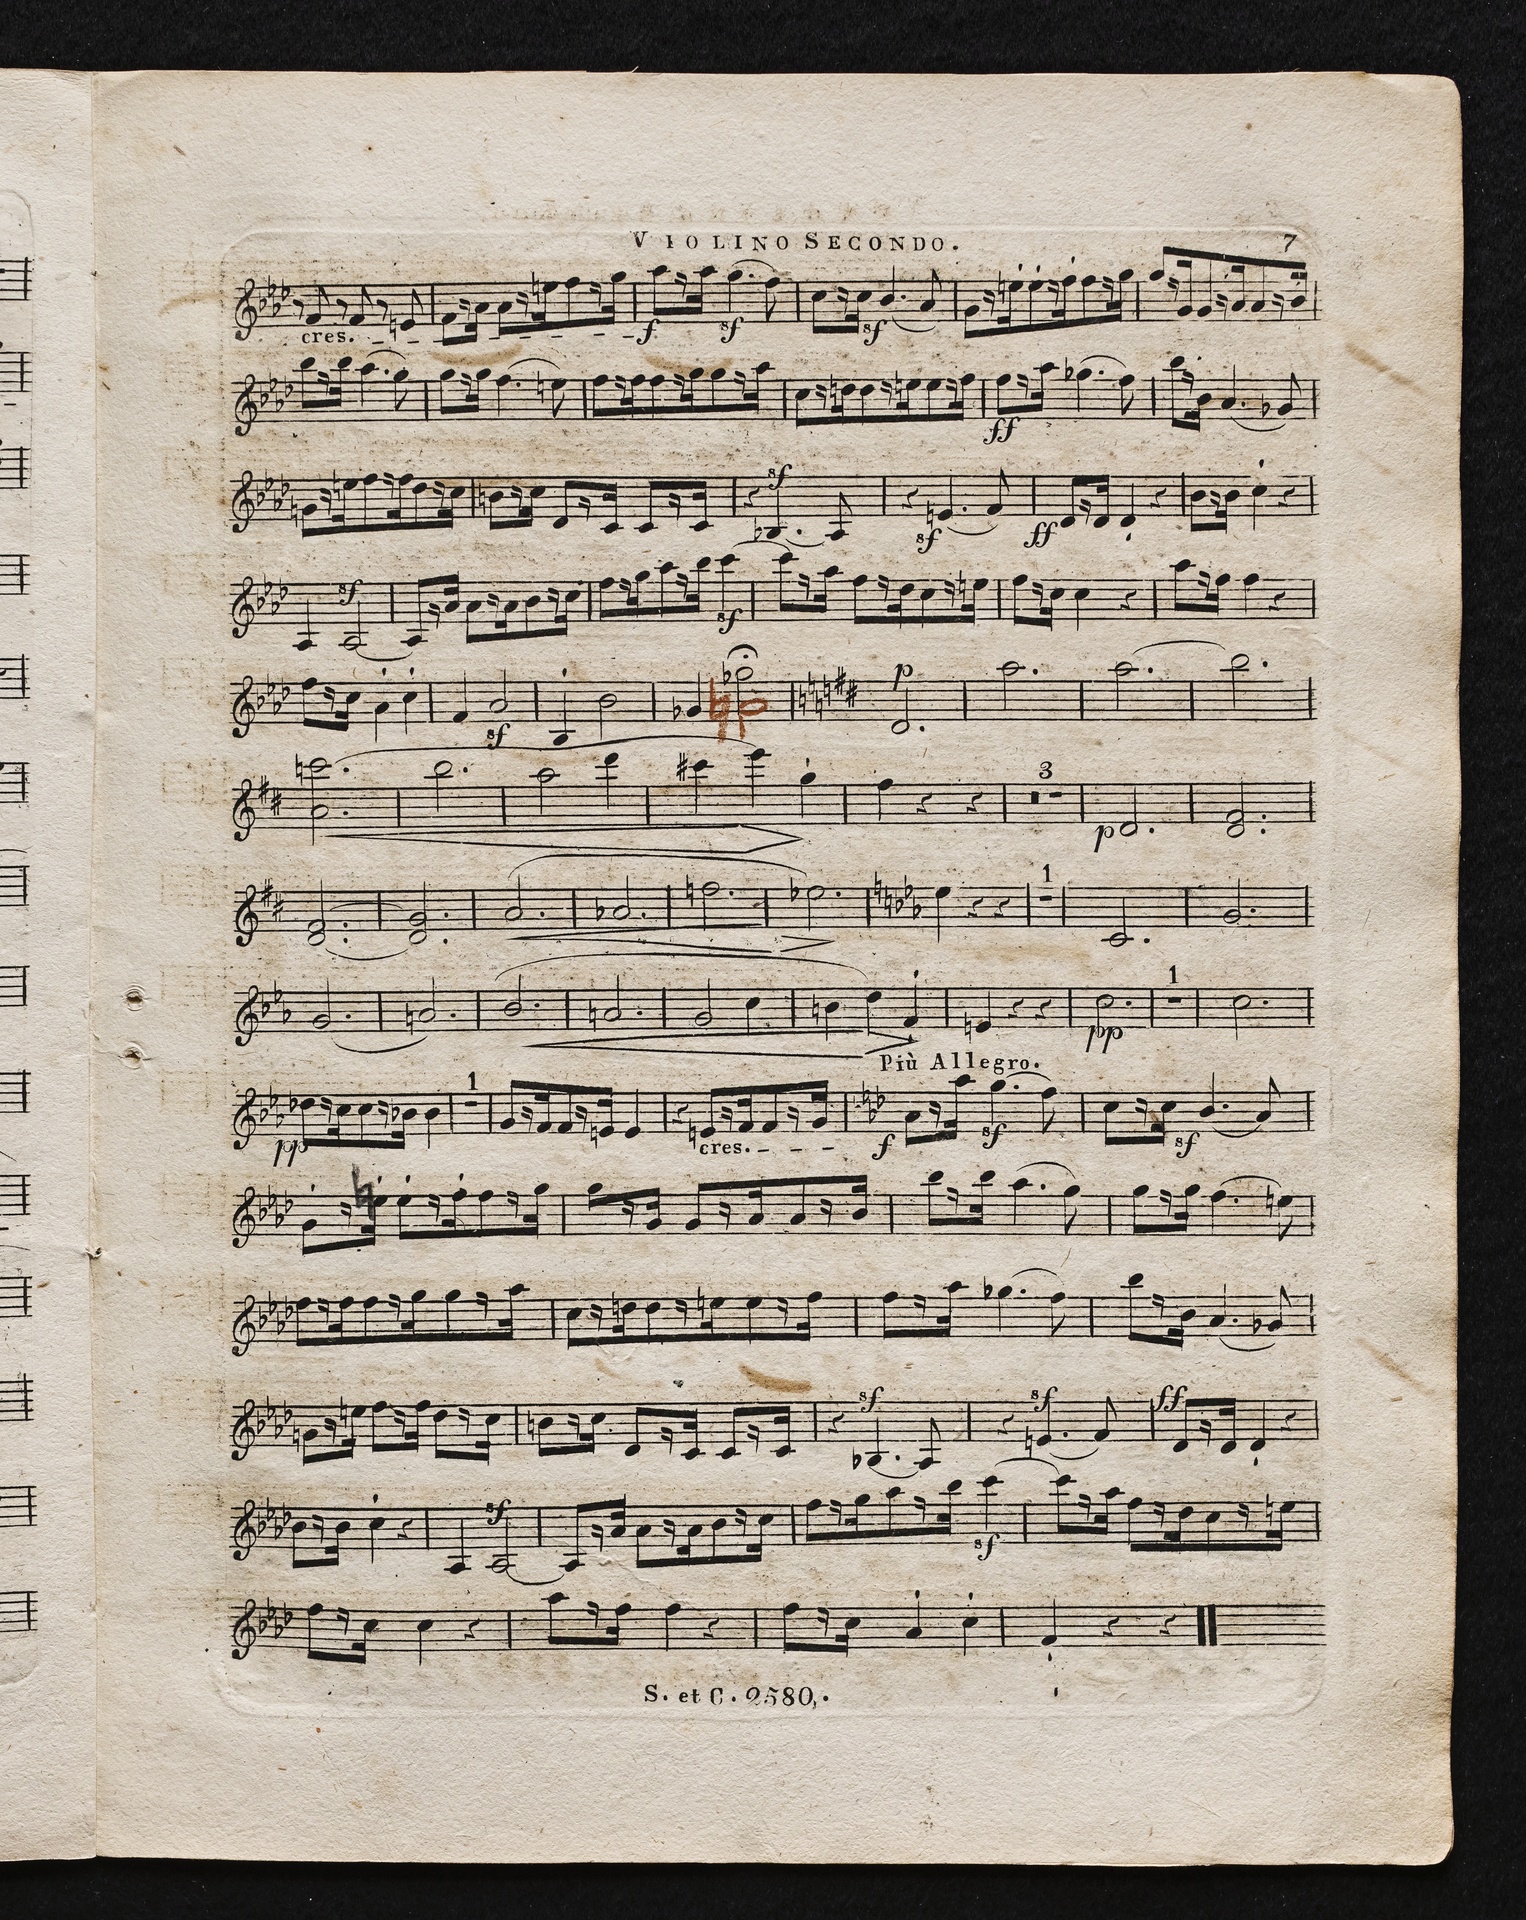 VIOLINO SECONDO. 7
cres. f sf sf
ff
sf sf ff
sf sf
sf p
3 p
1
1 pp
Più Allegro.
pp 1 cres. f sf sf
sf sf ff
sf sf
S. et C. 2580.